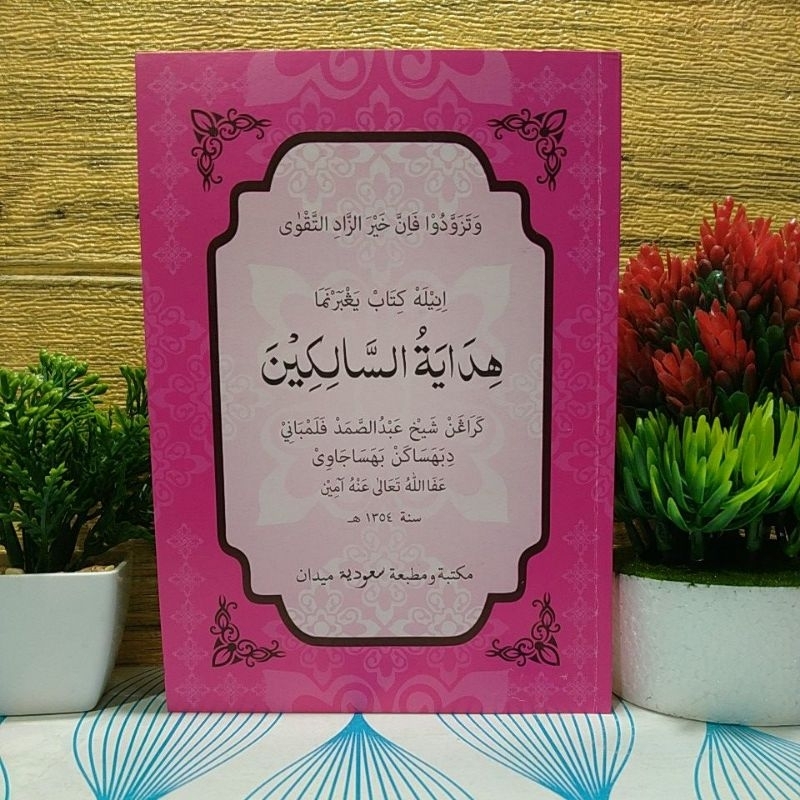 وَتَزَوَّدُوْا فَاِنَّ خَيْرَ الزَّادِ التَّقْوٰى
اِنِيْلَهْ كِتَابْ يَڠْبَرْنَمَا
هِدَايَةُ السَّالِكِيْنَ
كَرَاڠَنْ شَيْخ عَبْدُ الصَّمَدْ فَلَمْبَانِيْ
دِبَهَسَاكَنْ بَهَسَاجَاوِيْ
عَفَااللّٰهُ تَعَالٰى عَنْهُ اٰمِيْن
سنة ١٣٥٤ هـ
مكتبة ومطبعة سعودية ميدان